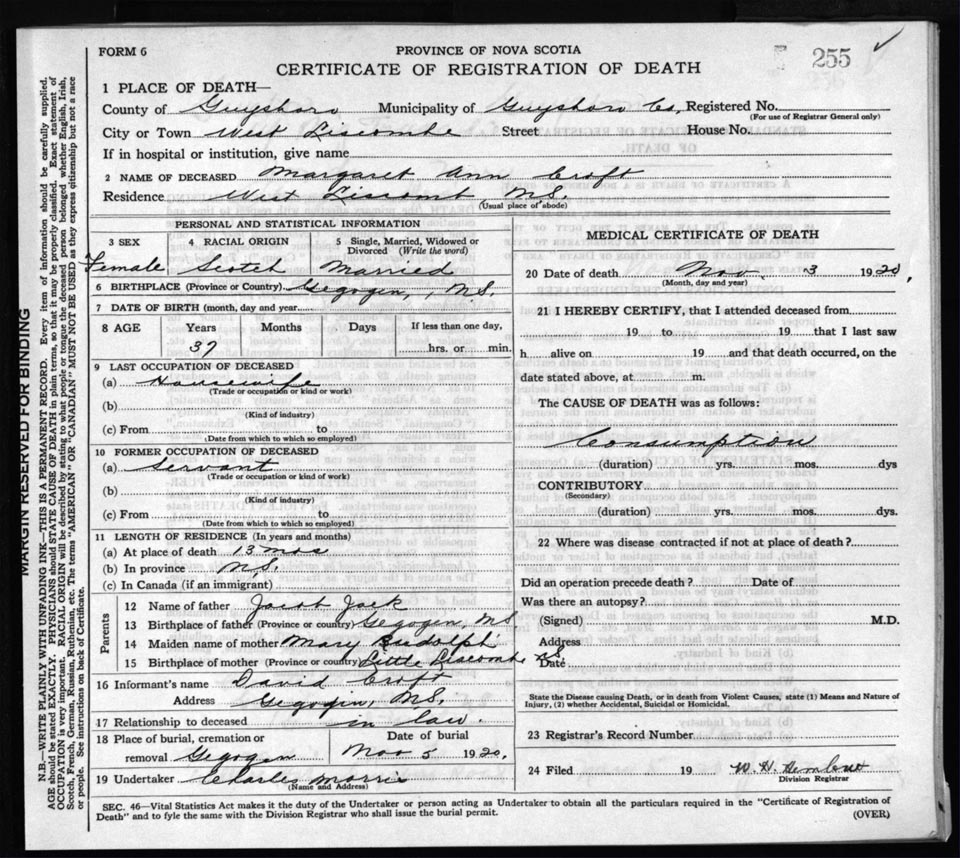 FORM 6
PROVINCE OF NOVA SCOTIA
255
CERTIFICATE OF REGISTRATION OF DEATH
1 PLACE OF DEATH—
County of Guysboro Municipality of Guysboro Co, Registered No.
(For use of Registrar General only)
City or Town West Liscombe Street House No.
If in hospital or institution, give name
2 NAME OF DECEASED Margaret Ann Croft
Residence West Liscomb N.S.
(Usual place of abode)
PERSONAL AND STATISTICAL INFORMATION
3 SEX 4 RACIAL ORIGIN 5 Single, Married, Widowed or Divorced (Write the word)
Female Scotch Married
6 BIRTHPLACE (Province or Country) Gegogin, N.S.
7 DATE OF BIRTH (month, day and year
8 AGE Years Months Days If less than one day,
37 hrs. or min.
9 LAST OCCUPATION OF DECEASED
(a) Housewife
(Trade or occupation or kind or work)
(b)
(Kind of industry)
(c) From to
(Date from which to which so employed)
10 FORMER OCCUPATION OF DECEASED
(a) Servant
(Trade or occupation or kind of work)
(b)
(Kind of industry)
(c) From to
(Date from which to which so employed)
11 LENGTH OF RESIDENCE (In years and months)
(a) At place of death 13 mos
(b) In province N.S.
(c) In Canada (if an immigrant)
Parents
12 Name of father Jacob Jack
13 Birthplace of father (Province or country) Gegogen, NS
14 Maiden name of mother Mary Rudolph
15 Birthplace of mother (Province or country Little Liscombe NS
16 Informant's name David Croft
Address Gegogin, N.S.
17 Relationship to deceased in law.
18 Place of burial, cremation or removal Gegogen
Date of burial Nov 5 1920.
19 Undertaker Charles Morris
(Name and Address)
MEDICAL CERTIFICATE OF DEATH
20 Date of death Nov 3 1920,
(Month, day and year)
21 I HEREBY CERTIFY, that I attended deceased from
19 to 19 that I last saw
h alive on 19 and that death occurred, on the
date stated above, at m.
The CAUSE OF DEATH was as follows:
Consumption
(duration) yrs. mos. dys
CONTRIBUTORY
(Secondary)
(duration) yrs. mos. dys
22 Where was disease contracted if not at place of death?
Did an operation precede death? Date of
Was there an autopsy?
(Signed) M.D.
Address
Date
State the Disease causing Death, or in death from Violent Causes, state (1) Means and Nature of
Injury, (2) whether Accidental, Suicidal or Homicidal.
23 Registrar's Record Number
24 Filed 19 W. H.
Division Registrar
SEC. 46—Vital Statistics Act makes it the duty of the Undertaker or person acting as Undertaker to obtain all the particulars required in the "Certificate of Registration of
Death" and to fyle the same with the Division Registrar who shall issue the burial permit.
(OVER)
MARGIN RESERVED FOR BINDING
N.B.—WRITE PLAINLY WITH UNFADING INK—THIS IS A PERMANENT RECORD. Every item of information should be carefully supplied.
AGE should be stated EXACTLY. PHYSICIANS should STATE CAUSE OF DEATH in plain terms, so that it may be properly classified. Exact statement of
OCCUPATION is very important. RACIAL ORIGIN will be described by stating to what people or tongue the deceased person belonged, whether English, Irish,
Scotch, French, German, Russian, Ruthenian, etc. The terms "AMERICAN" OR "CANADIAN" MUST NOT BE USED as they express citizenship but not a race
or people. See instructions on back of Certificate.